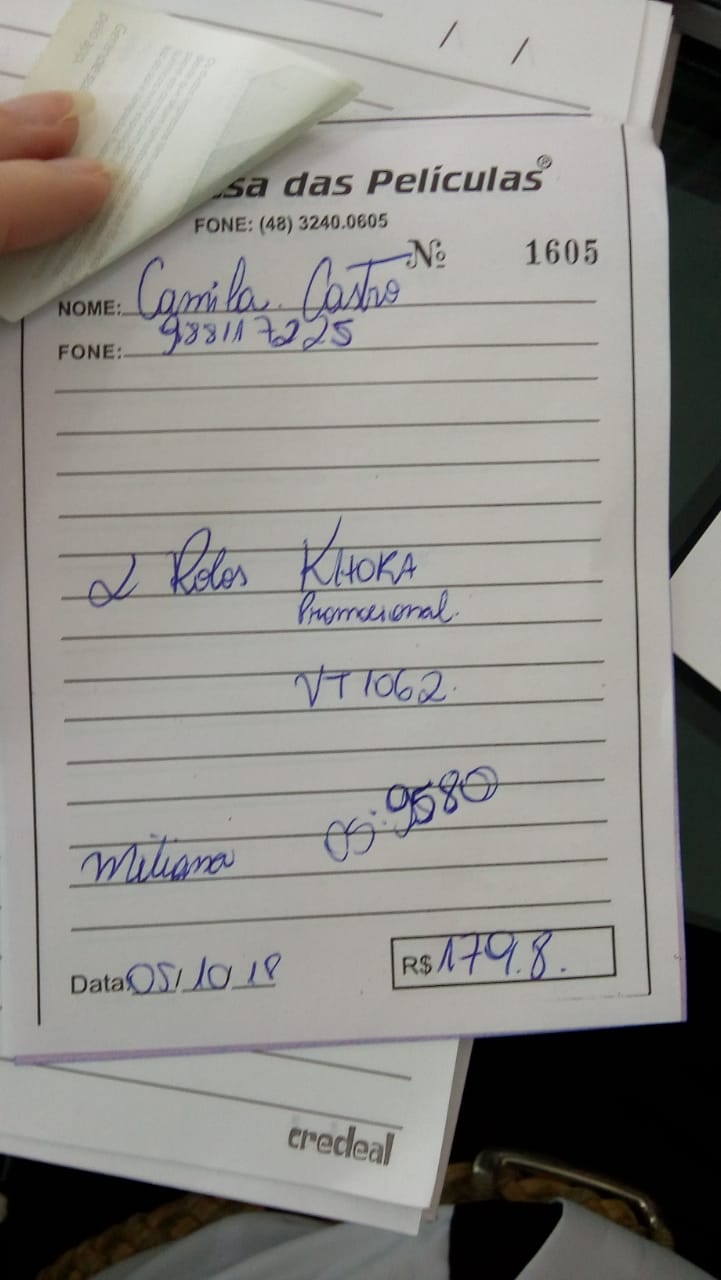 sa das Películas®
FONE: (48) 3240.0605
Nº 1605
NOME: Camila Castro
FONE: 988117225
2 Rolos KHOKA
Promocional.
VT1062.
OS: 9580
Miliana
Data 05/10/18
R$ 179.8.
credeal